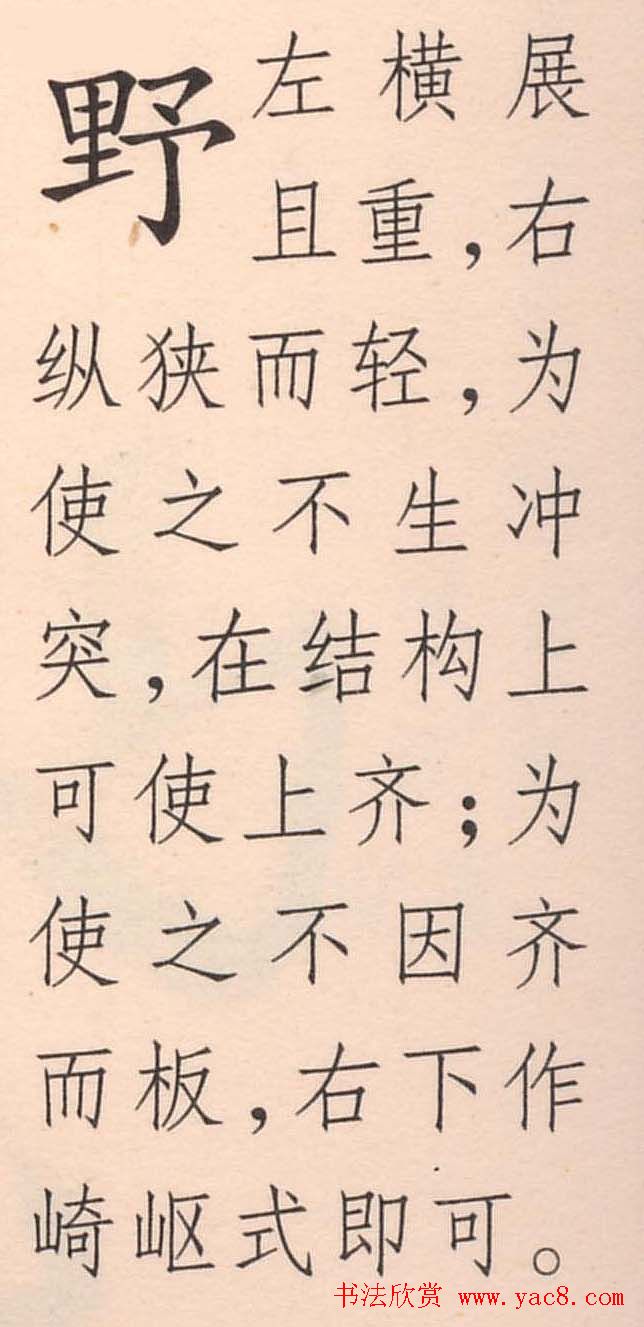 野 左横展
且重，右
纵狭而轻，为
使之不生冲
突，在结构上
可使上齐；为
使之不因齐
而板，右下作
崎岖式即可。
书法欣赏 www.yac8.com